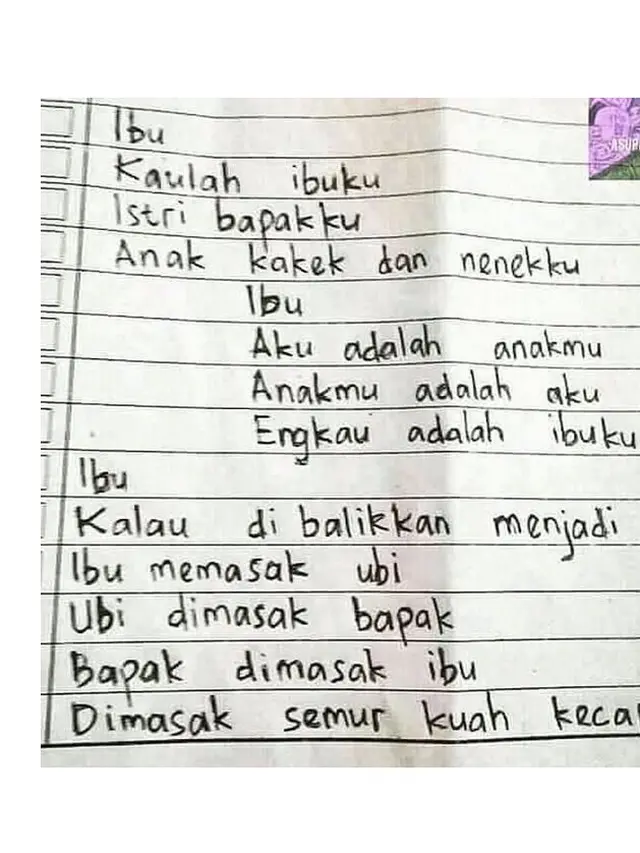 Ibu
Kaulah ibuku
Istri bapakku
Anak kakek dan nenekku
Ibu
Aku adalah anakmu
Anakmu adalah aku
Engkau adalah ibuku
Ibu
Kalau di balikkan menjadi
Ibu memasak ubi
Ubi dimasak bapak
Bapak dimasak ibu
Dimasak semur kuah